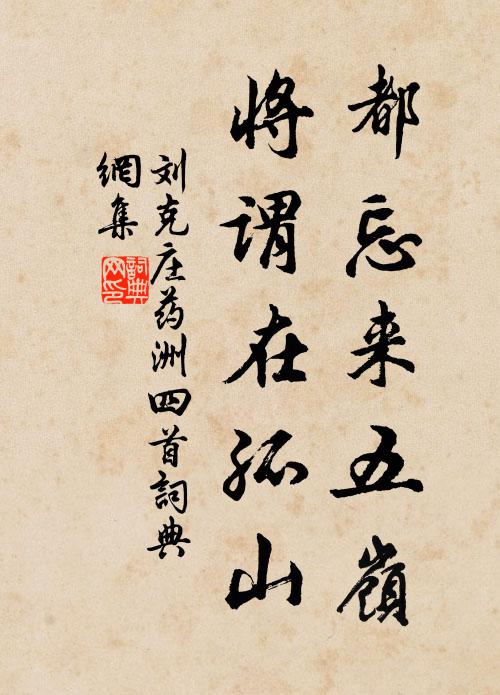 都忘来五嶺
将谓在孤山
刘克庄药洲四首詞典
網集
詞典
网印